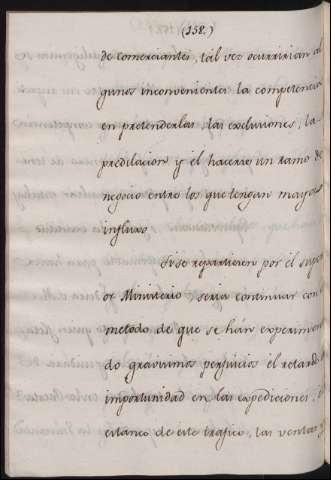 (158.)
de comerciantes, tál vez ocurririan al
gunos inconvenientes la competencia
en pretenderlas, las exclusiones, la
predileccion y el hacerse un ramo de
negocio entre los que tengan mayor
influxo.
Si se repartiesen por él supe
or Ministerio, seria continuar con
metodo, de que se hán experimen
do gravisimos perjuicios él retardo
importunidad en las expediciones,
estanco de este trafico, las ventas